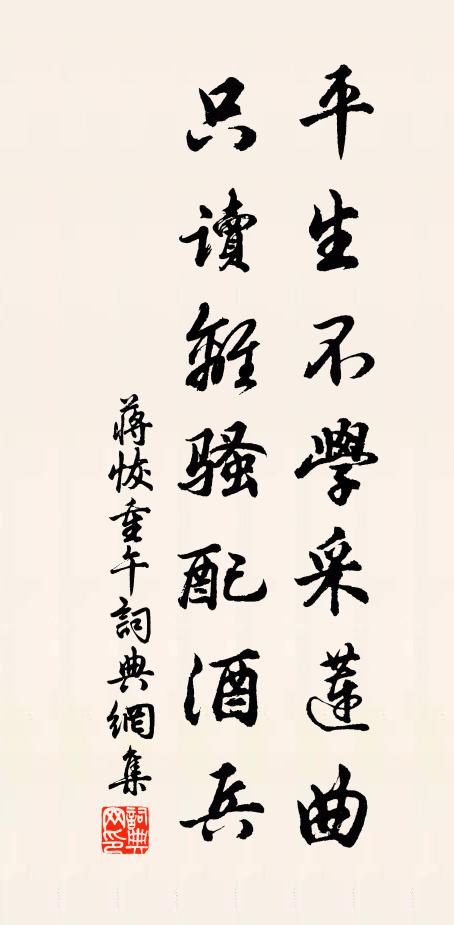 平生不學采蓮曲
只讀離騷配酒兵
蔣恢重午詞典網集
詞典網印